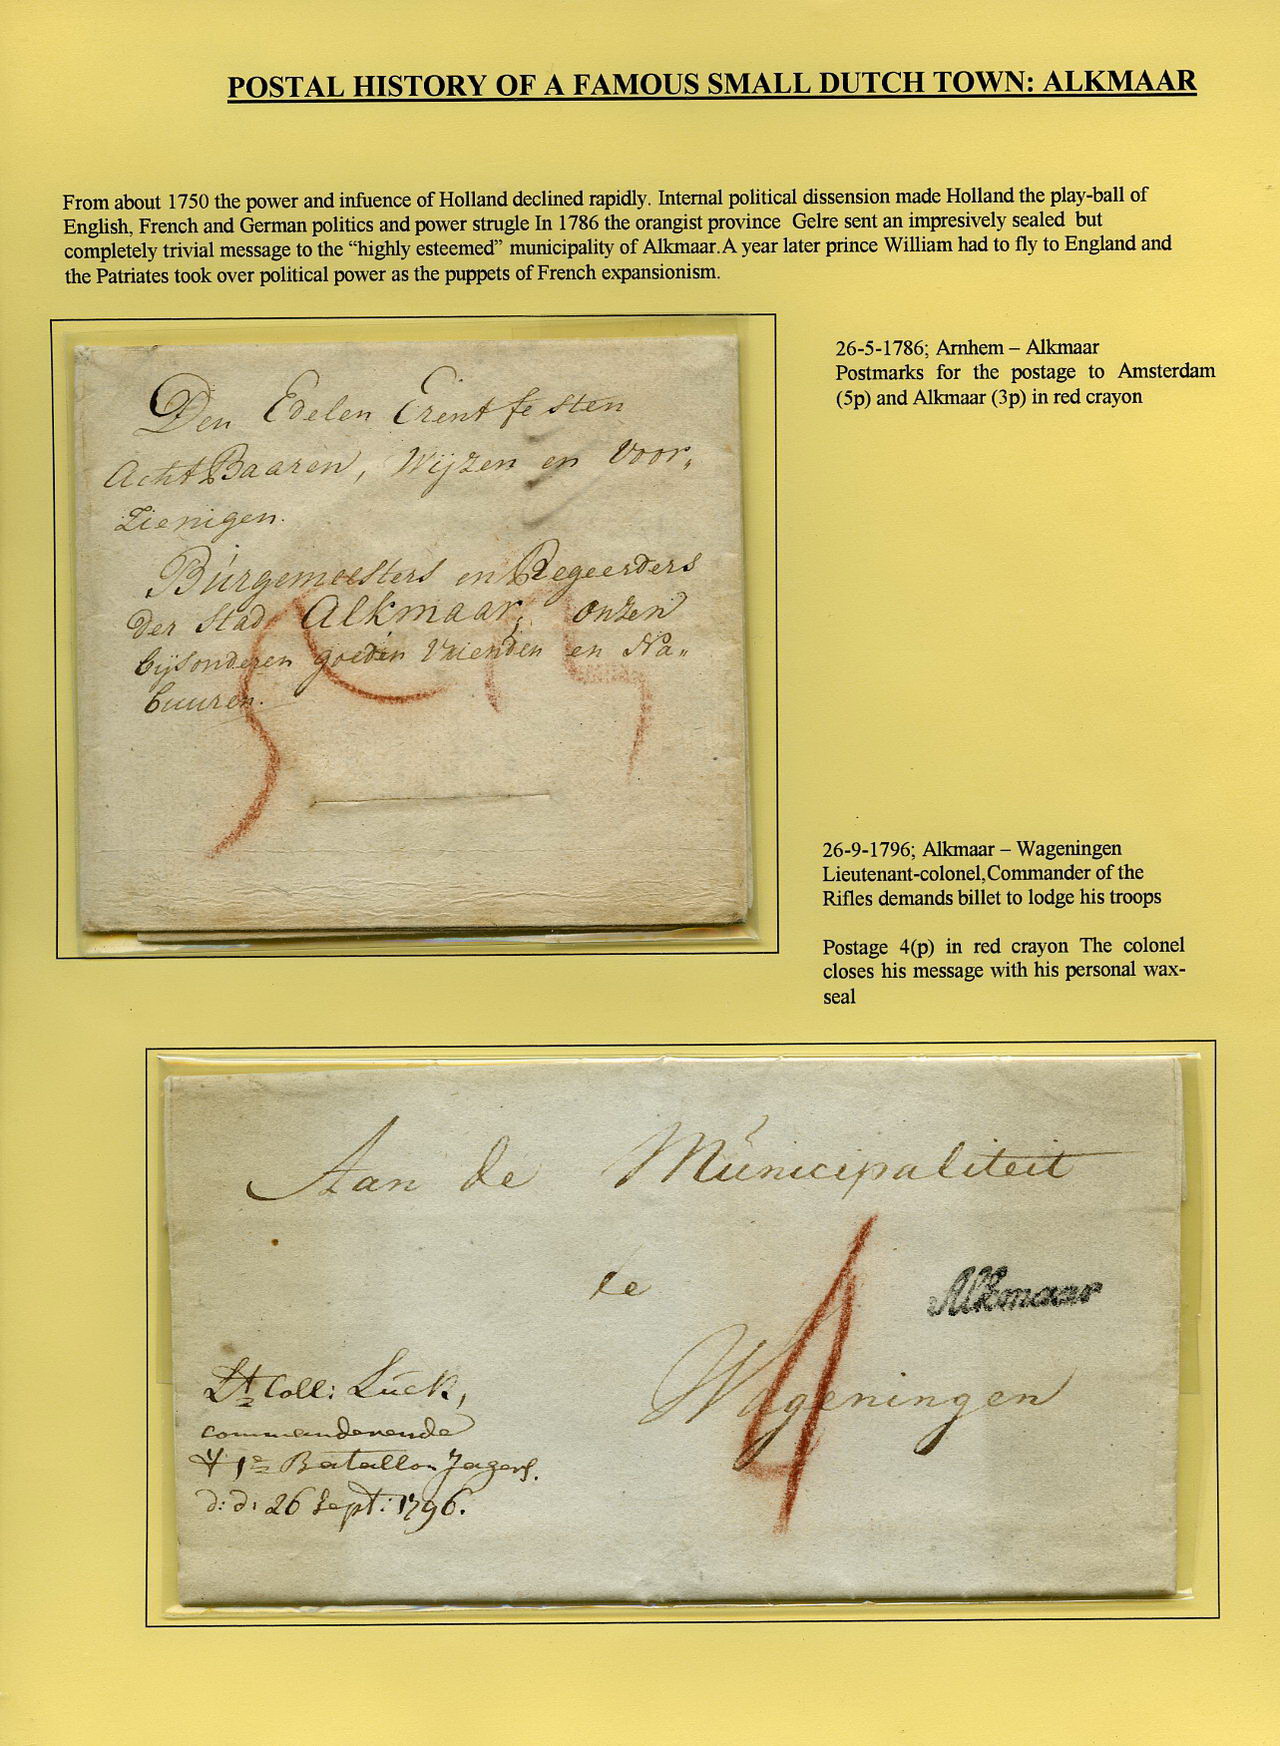 POSTAL HISTORY OF A FAMOUS SMALL DUTCH TOWN: ALKMAAR
From about 1750 the power and infuence of Holland declined rapidly. Internal political dissension made Holland the play-ball of
English, French and German politics and power strugle In 1786 the orangist province Gelre sent an impresively sealed but
completely trivial message to the “highly esteemed” municipality of Alkmaar.A year later prince William had to fly to England and
the Patriates took over political power as the puppets of French expansionism.
26-5-1786; Arnhem – Alkmaar
Postmarks for the postage to Amsterdam
(5p) and Alkmaar (3p) in red crayon
Den Edelen Erentfesten
AchtBaaren, Wijzen en Voor„
Zienigen.
Burgemeesters en Regeerders
der Stad Alkmaar, onzen
bijsonderen goeden Vrienden en Na„
buuren.
26-9-1796; Alkmaar – Wageningen
Lieutenant-colonel,Commander of the
Rifles demands billet to lodge his troops
Postage 4(p) in red crayon The colonel
closes his message with his personal wax-
seal
Aan de Municipaliteit
te
Alkmaar
Wageningen
4
Lt Coll: Luck,
commanderende
1e Batallon Jagers.
d: d: 26 Sept: 1796.